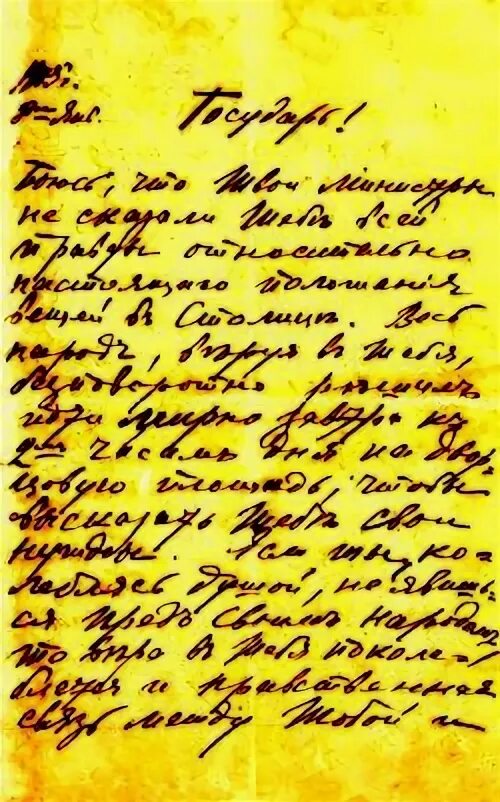 Государь!
8го Янв.
Боюсь, что Твои министры
не сказали Тебѣ всей
правды относительно
настоящаго положенія
вещей в Столицѣ. Весь
народъ, вѣруя в Тебя,
безповоротно рѣшилъ
идти мирно завтра къ
2м часамъ дня на Двор-
цовую площадь, чтобы
высказать Тебѣ свои
нужды. Если ты, ко-
леблясь душой, не явишь-
ся предъ своимъ народомъ,
то вѣра в Тебя поколе-
блется и нравственная
связь между Тобой и